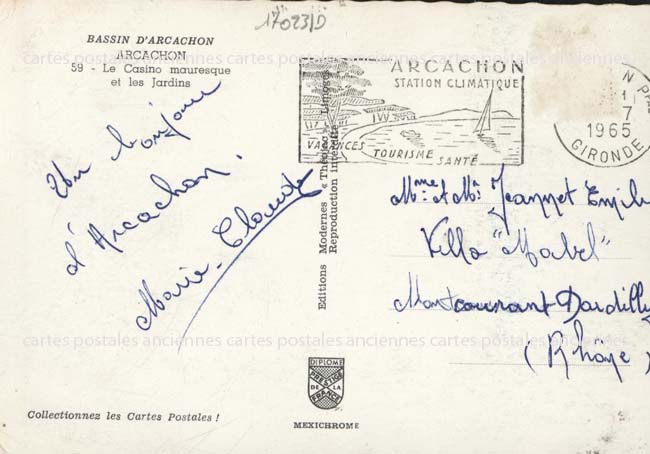 17023/D
BASSIN D'ARCACHON
ARCACHON
59 - Le Casino mauresque
et les Jardins
Un bonjour
d'Arcachon.
Marie-Claude
Editions Modernes « Théojac » Limoges
Reproduction interdite
ARCACHON
STATION CLIMATIQUE
VACANCES TOURISME SANTÉ
7
1965
GIRONDE
Mme et Mr Jeannet Emile
Villa "Mabel"
Montcourant Dardilly
(Rhône)
cartes postales anciennes cartes postales anciennes cartes postales anciennes
cartes postales anciennes cartes postales anciennes cartes postales anciennes
DIPLOME
PRESTIGE
DE LA
FRANCE
Collectionnez les Cartes Postales !
MEXICHROME